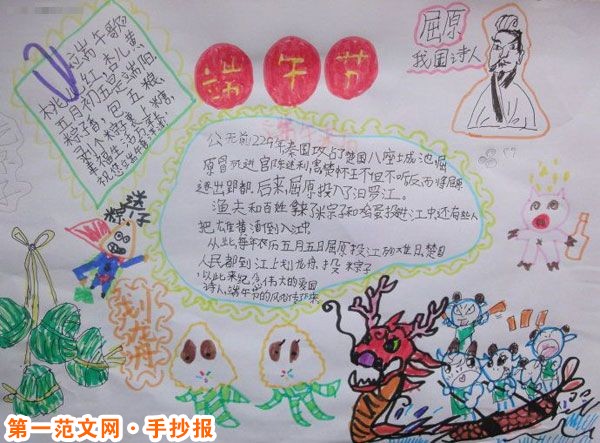 端午节
屈原
我国诗人
端午歌
桃儿红 杏儿黄
五月初五是端阳
粽子香，包五粮
剥个粽子裹上糖
幸福生活万年长
公元前229年秦国攻占了楚国八座城池
逐出郢都 后来屈原投入了汨罗江。
渔夫和百姓拿来粽子和鸡蛋投进江中还有些人
把雄黄酒倒入江中
从此，每年农历五月五日屈原投江放难日楚国
人民都到江上划龙舟，投粽子
以此来纪念伟大的爱国
诗人，端午节的风俗传下来
送粽子
划龙舟
第一范文网·手抄报